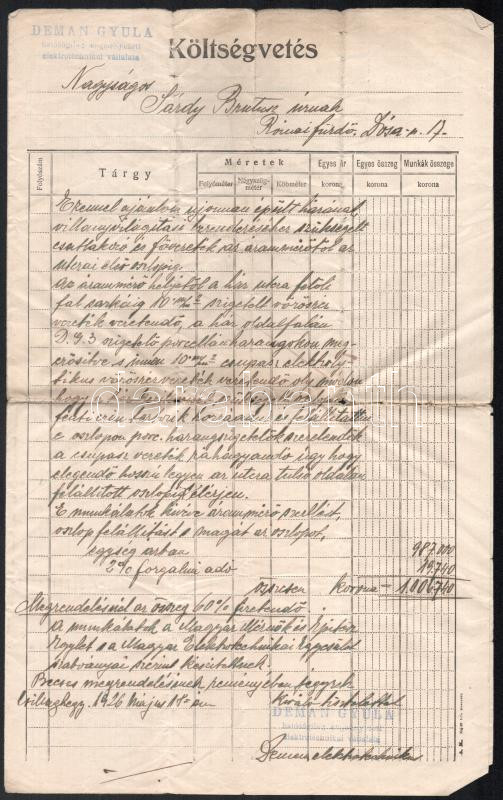 DEMAN GYULA
hatóságilag engedélyezett
elektrotechnikai vállalata
Költségvetés
Nagyságos
Sárdy Brutusz úrnak
Római fürdő. Dósa-u. 17.
Folyószám
Tárgy
Méretek
Egyes ár
Egyes összeg
Munkák összege
Folyóméter
Négyszögméter
Köbméter
korona
korona
korona
Ezennel ajánlom újonnan épült házának
villanyvilágítási berendezéséhez szükségelt
csatlakozó és fővezeték az árammérőtől az
utcai első oszlopig.
Az árammérő helyétől a ház utca felőli
fal sarkáig 10 m/m² szigetelt vörösréz
vezeték vezetendő, a ház oldalfalán
szigetelő porcellánharangokon meg-
erősítve s innen 10 m/m² csupasz elektroly-
tikus vörösrézvezeték vezetendő oly módon
hogy
e oszlopon porc. harangszigetelők szerelendők
a csupasz vezeték ráhagyandó úgy hogy
elegendő hosszú legyen az utca tulsó oldalán
felállított oszlopig elérjen.
E munkálatok kivéve árammérő szerelést,
oszlop felállítást s magát az oszlopot,
egység árban 987.000
2% forgalmi adó 19.740
összesen korona 1.006.740
Megrendelésnél az összeg 60% fizetendő.
A munkálatok a Magyar Mérnök és Építész
Egylet s a Magyar Elektrotechnikai Egyesület
szabványai szerint készíttetnek.
Becses megrendelésének reményében vagyok
Csillaghegy, 1926 május 18-án Kiváló tisztelettel
DEMAN GYULA
hatóságilag engedélyezett
elektrotechnikai vállalata
Deman elektrotechnikus